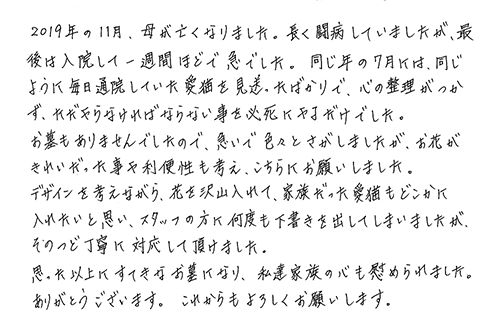 2019年の11月、母が亡くなりました。長く闘病していましたが、最
後は入院して一週間ほどで急でした。同じ年の7月には、同じ
ように毎日通院していた愛猫を見送ったばかりで、心の整理がつか
ず、ただやらなければならない事を必死にやるだけでした。
お墓もありませんでしたので、急いで色々とさがしましたが、お花が
きれいだった事や利便性も考え、こちらにお願いしました。
デザインを考えながら、花を沢山入れて、家族だった愛猫もどこかに
入れたいと思い、スタッフの方に何度も下書きを出してしまいましたが、
そのつど丁寧に対応して頂けました。
思った以上にすてきなお墓になり、私達家族の心も慰められました。
ありがとうございます。これからもよろしくお願いします。